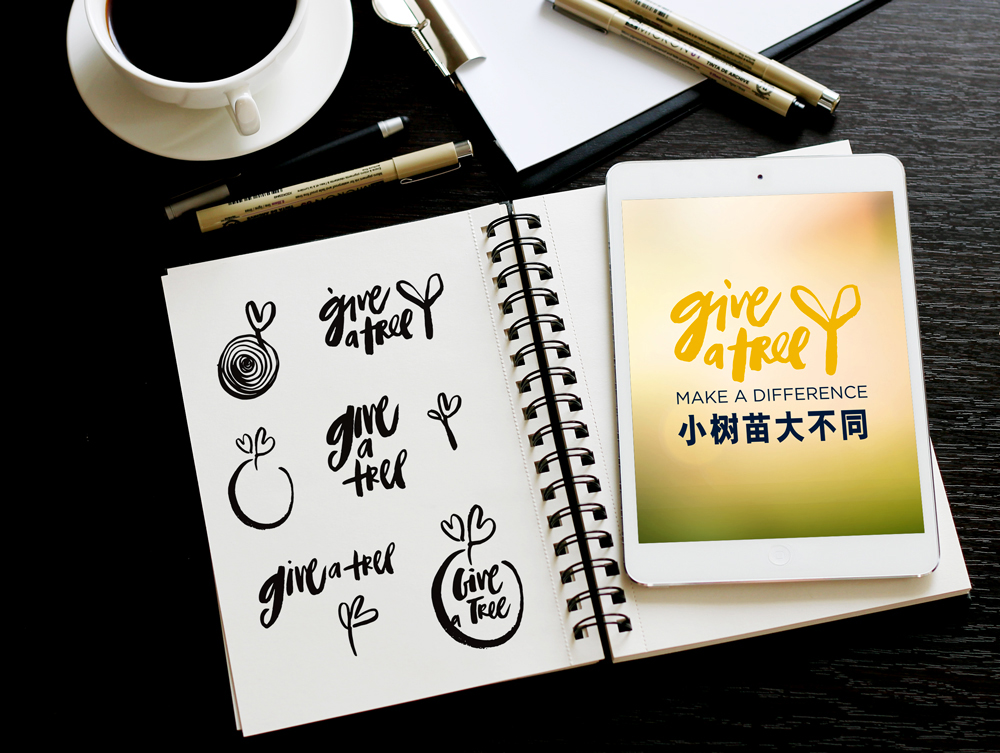 give
a tree
give
a
tree
give a tree
Give
a Tree
give
a tree
MAKE A DIFFERENCE
小树苗大不同
TINTA DE ARCHIVE